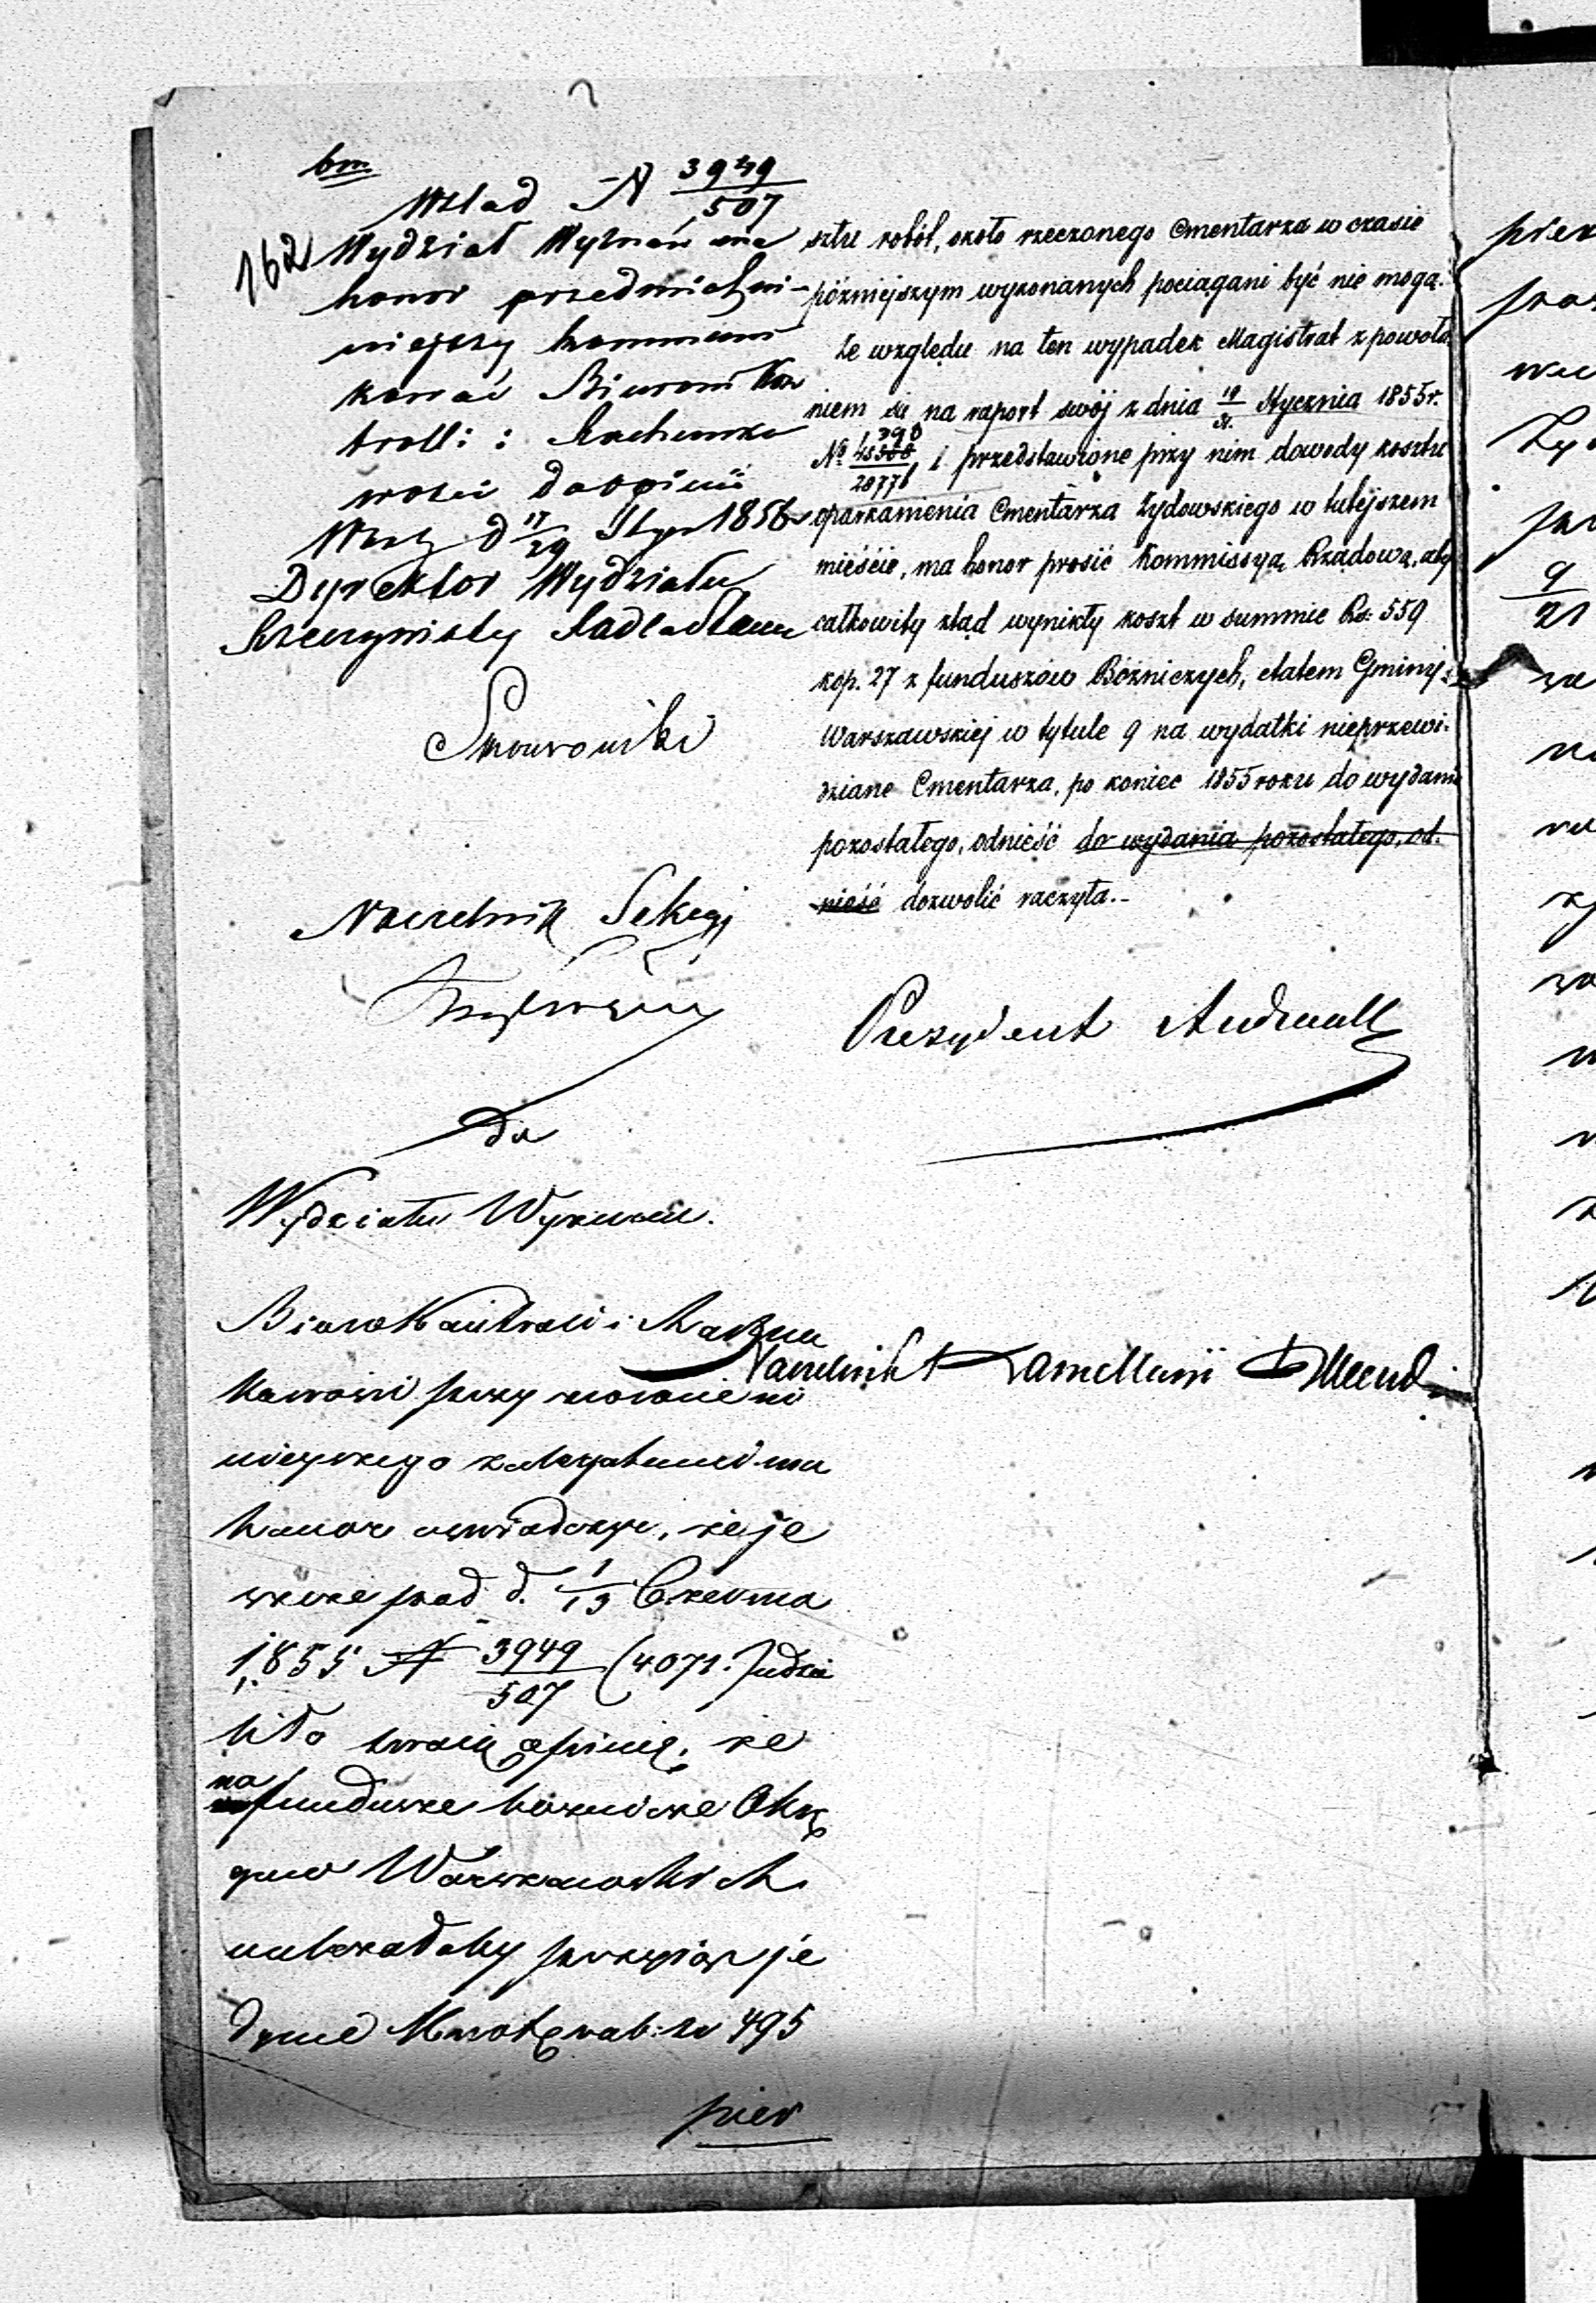 bm
Wkład N 3949/507
162
Wydział Wyznań ma
honor przedmiot ni-
niejszy kommuni
kować Biurowi Kon
trolli i Rachunko
wości do opinii
Warsz d 17/29 Stycz 1856
Dyrektor Wydziału
Rzeczywisty Radca Stanu
Naczelnik Sekcyi
do
Wydziału Wyznań.
Biuro Kontroli i Rachun
kowości przy zwrocie ni
niejszego z allegatami ma
honor oświadczyć, że je
szcze pod d. 1/13 Czerwca
1855 N 3949/507 (4071.) udzie
liło swoją opinię, że
na fundusze bóżnicze Okrę
gów Warszawskich
należałoby przyjąć je
dynie kwotę rub: sr 495
pier
sztu robót, około rzeczonego Cmentarza w czasie
późniejszym wykonanych pociągani być nie mogą.
Ze względu na ten wypadek Magistrat z powoła
niem się na raport swój z dnia 19/31 Stycznia 1855 r.
i przedstawione przy nim dowody kosztu
oparkanienia Cmentarza Żydowskiego w tutejszem
mieście, ma honor prosić Kommissyą Rządową, aby
całkowity ztąd wynikły koszt w summie Rs: 559
kop. 27 z funduszów Bóżniczych, etatem Gminy
Warszawskiej w tytule 9 na wydatki nieprzewi-
dziane Cmentarza, po koniec 1855 roku do wydania
pozostałego, odnieść do wydania pozostałego, od-
nieść dozwolić raczyła.-
Prezydent Andrault
Naczelnik Kancellaryi